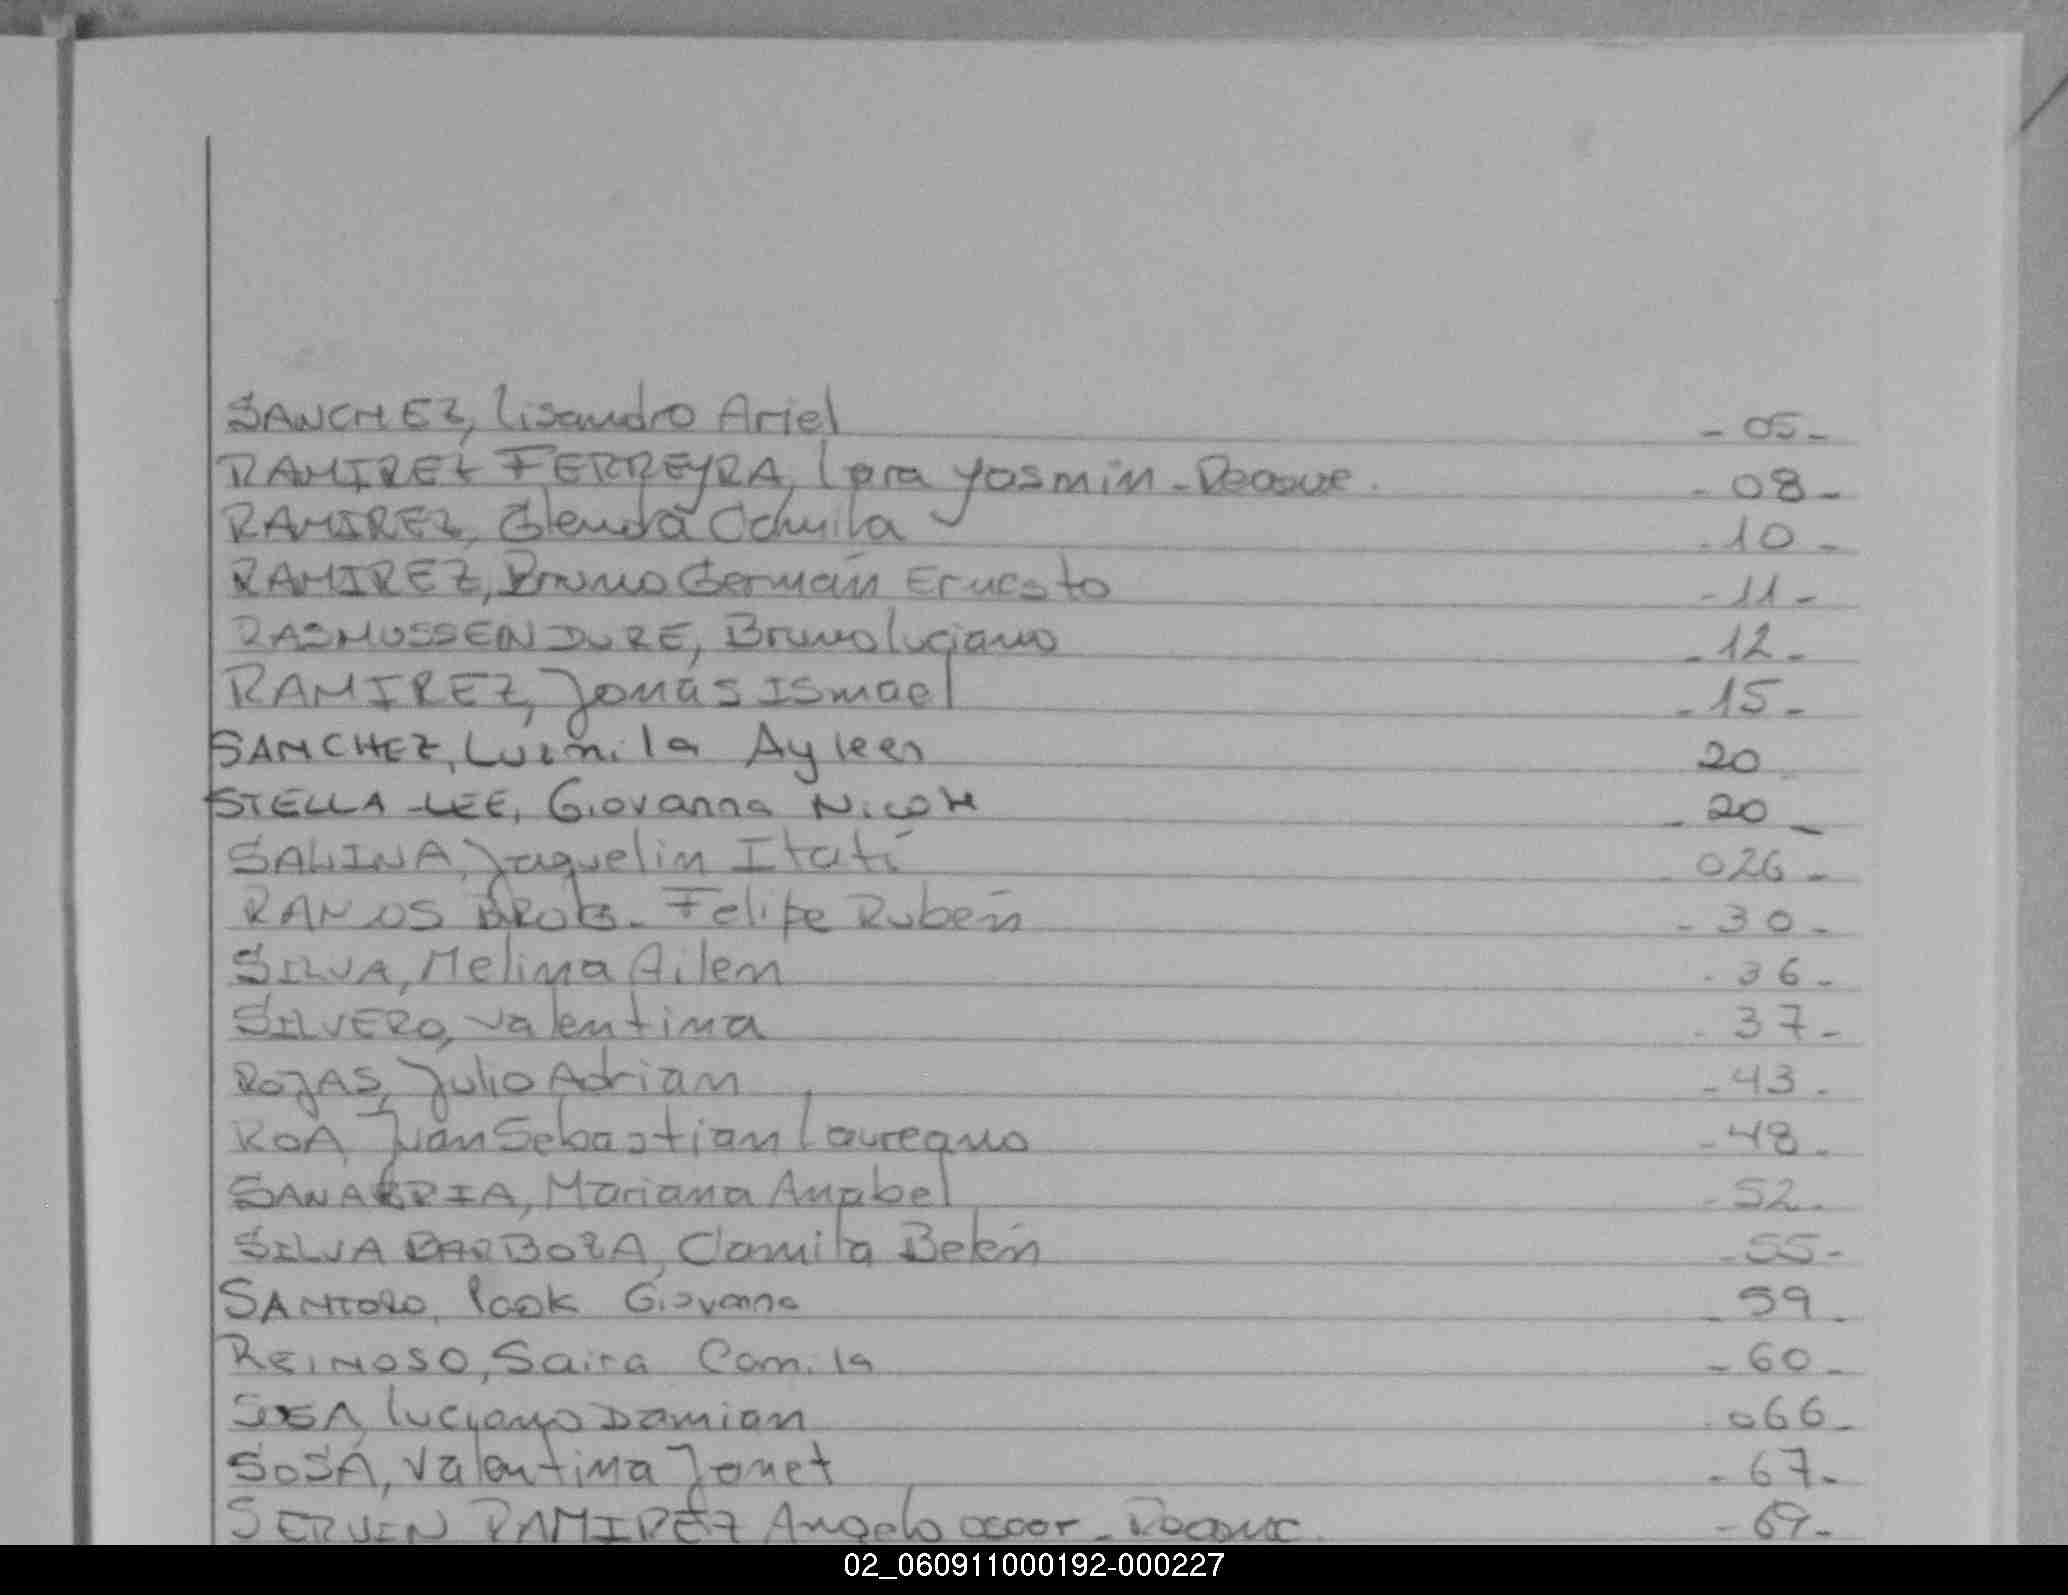 SANCHEZ, Lisandro Ariel - 05 -
RAMIREZ FERREYRA, Lara Yasmin - 08 -
RAMIREZ, Glenda Camila - 10 -
RAMIREZ, Bruno Germán Ernesto - 11 -
RASMUSSEN DURE, Bruno Luciano - 12 -
RAMIREZ, Jonás Ismael - 15 -
SANCHEZ, Luzmila Ayleen 20
STELLA LEE, Giovanna Nicole - 20 -
SALINA, Jaquelin Itatí 026 -
RAMOS Felipe Rubén - 30 -
SILVA, Melina Ailem - 36 -
SILVERO, Valentina - 37 -
ROJAS, Julio Adrian - 43 -
ROA, Juan Sebastian Laureano - 48 -
SANABRIA, Mariana Anabel - 52 -
SILVA BARBOZA, Camila Belén - 55 -
SANTORO, Giovanna - 59 -
REINOSO, Saira Camila - 60 -
SOSA, Luciano Damian - 066 -
SOSA, Valentina Janet - 67 -
SERVIN RAMIREZ Angelo - 69 -
02_060911000192-000227